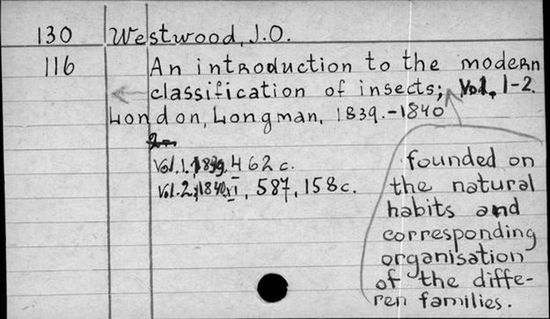 130 Westwood, J.O.
116 An introduction to the modern
classification of insects; Vol. 1-2.
London, Longman, 1839.-1840
2-
Vol.1. 1839. 462 c.
Vol.2. 1840. XI, 587, 158c.
founded on
the natural
habits and
corresponding
organisation
of the diffe-
ren families.